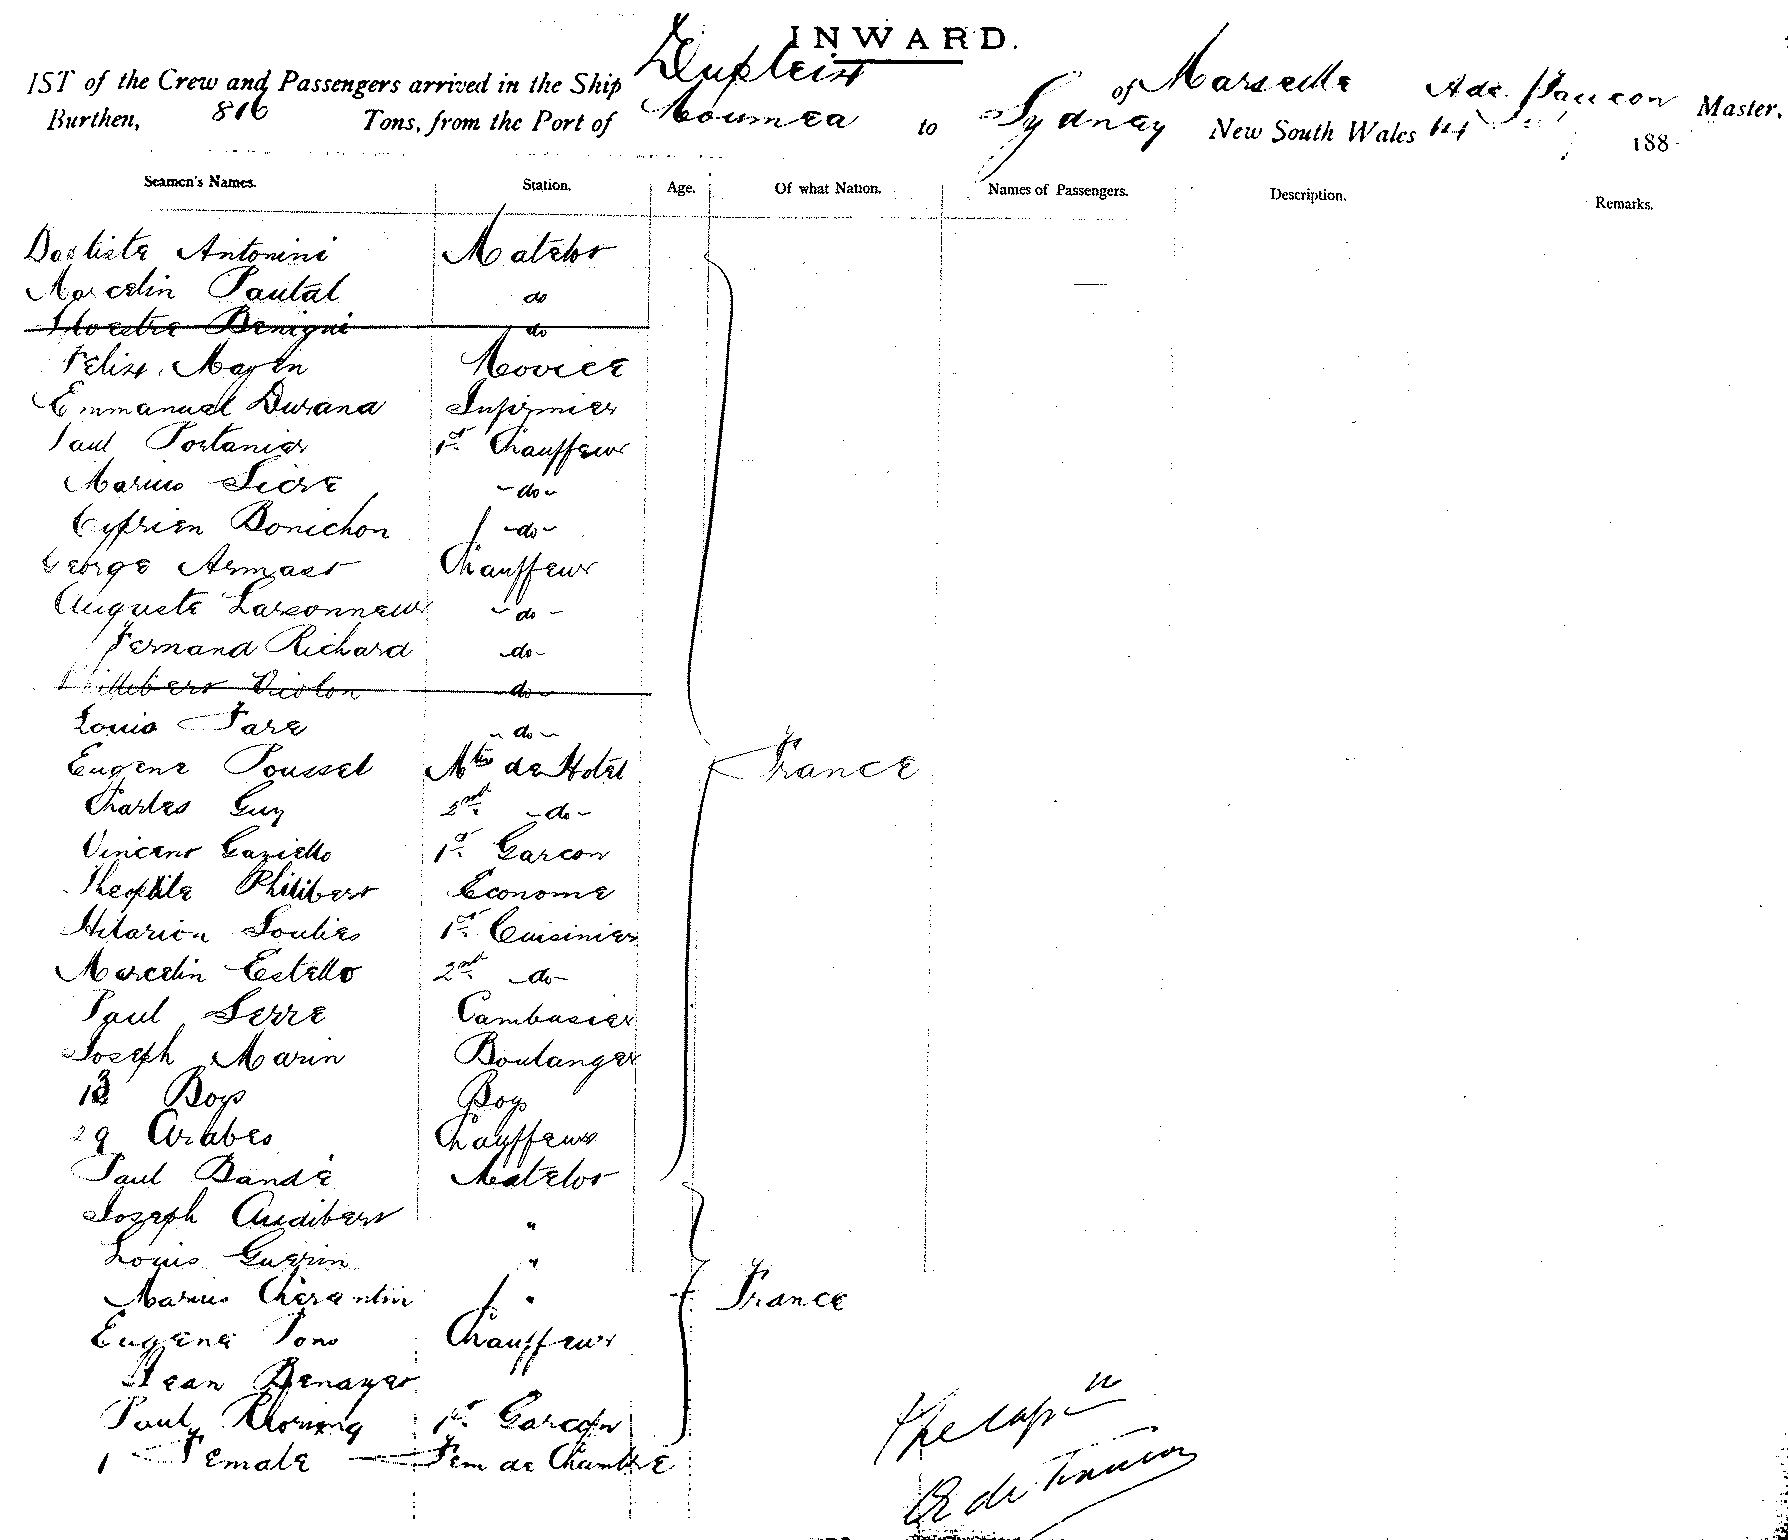 INWARD.
IST of the Crew and Passengers arrived in the Ship Dupleix of Marseille Ade. Master.
Burthen, 816 Tons, from the Port of Noumea to Sydney New South Wales 188
Seamen's Names. Station. Age. Of what Nation. Names of Passengers. Description. Remarks.
Baptiste Antonini Matelot
Marcelin Pautal do
Benigni do
Felix Magen Novice
Emmanuel Durand Infirmier
Paul Portanier 1er Chauffeur
Marius Sicre -do-
Cyprien Bonichon -do-
George Armast Chauffeur
Auguste Larsonneur -do-
Fernand Richard -do-
Philibert Violon -do-
Louis Fare -do-
Eugene Poussel Mtre de Hotel France
Charles Guy 2nd -do-
Vincent Gaziello 1er Garcon
Theophile Philibert Econome
Hilarion Soulies 1er Cuisinier
Marcelin Estello 2nd -do-
Paul Serre Cambusier
Joseph Marin Boulanger
13 Boys Boy
29 Arabes Chauffeurs
Paul Bandé Matelot
Joseph Audibert "
Louis Guerin "
Marius Cherantin " France
Eugene Pons Chauffeur
Jean Benayer
Paul 1er Garcon
1 Female Fem de Chambre
The Capn